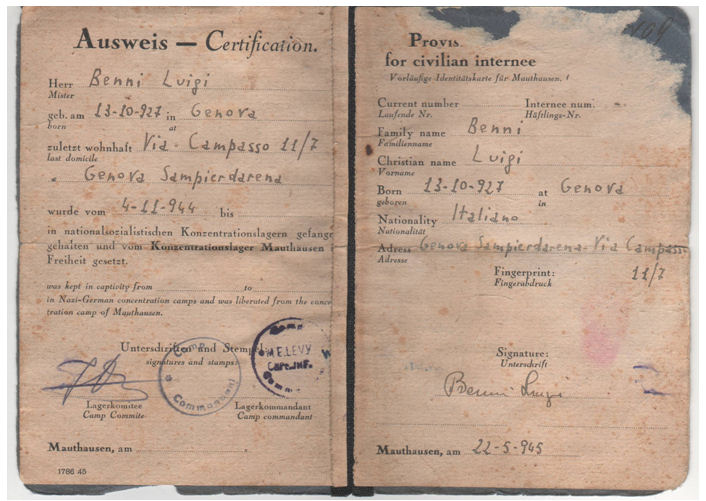 Ausweis — Certification.
Herr Benni Luigi
Mister
geb. am 13-10-927 in Genova
born at
zuletzt wohnhaft Via Campasso 11/7
last domicile
Genova Sampierdarena
wurde vom 4-11-944 bis
in nationalsozialistischen Konzentrationslagern gefange
gehalten und vom Konzentrationslager Mauthausen i
Freiheit gesetzt.
was kept in captivity from to
in Nazi-German concentration camps and was liberated from the conce
tration camp of Mauthausen.
Unterschriften und Stempel
signatures and stamps:
Camp
Commandant
M.E.LEVY
Capt.INF.
Lagerkomitee Lagerkommandant
Camp Commite Camp commandant
Mauthausen, am
1786 45
Provis
for civilian internee
Vorläufige Identitätskarte für Mauthausen.
Current number Internee num.
Laufende Nr. Häftlings-Nr.
Family name Benni
Familienname
Christian name Luigi
Vorname
Born 13-10-927 at Genova
geboren in
Nationality Italiano
Nationalität
Adress Genova Sampierdarena-Via Campasso
Adresse
Fingerprint: 11/7
Fingerabdruck
Signature:
Unterschrift
Benni Luigi
Mauthausen, am 22-5-945